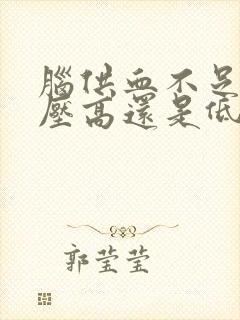 腦供血不足
壓高還是低
郭莹莹